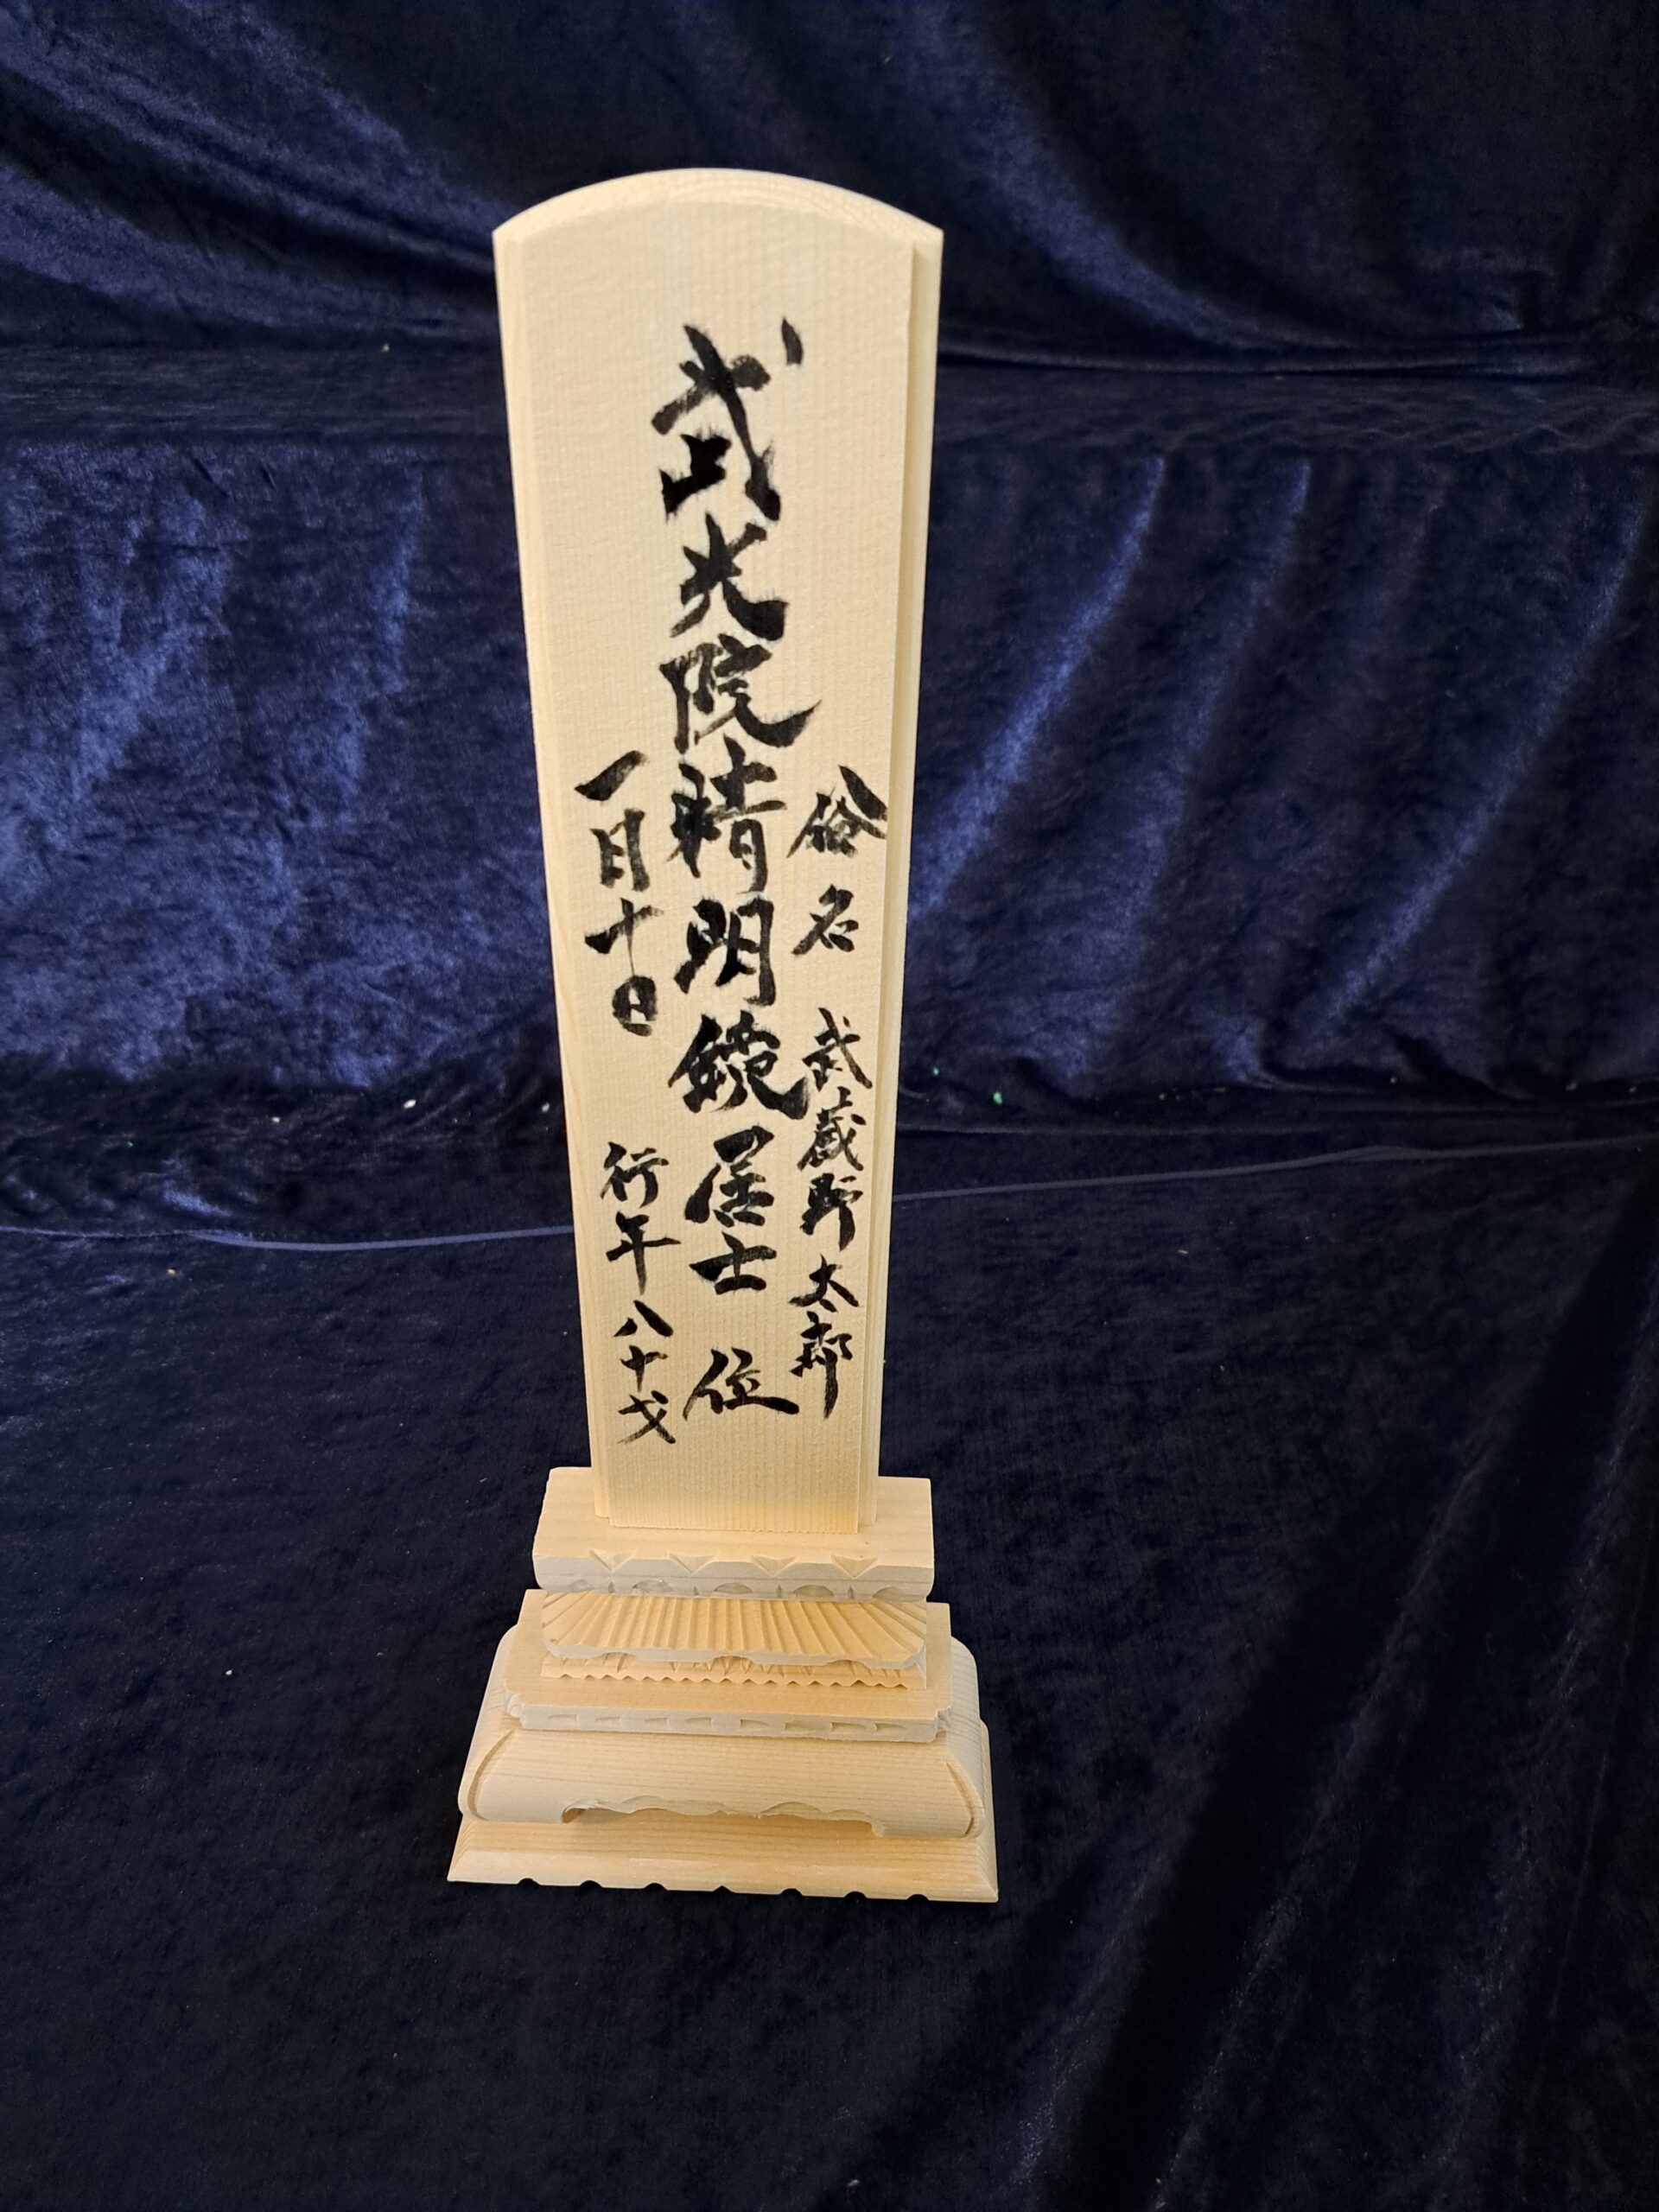 俗名 武蔵野太郎
武光院精明鏡居士 位
一月十日 行年八十才